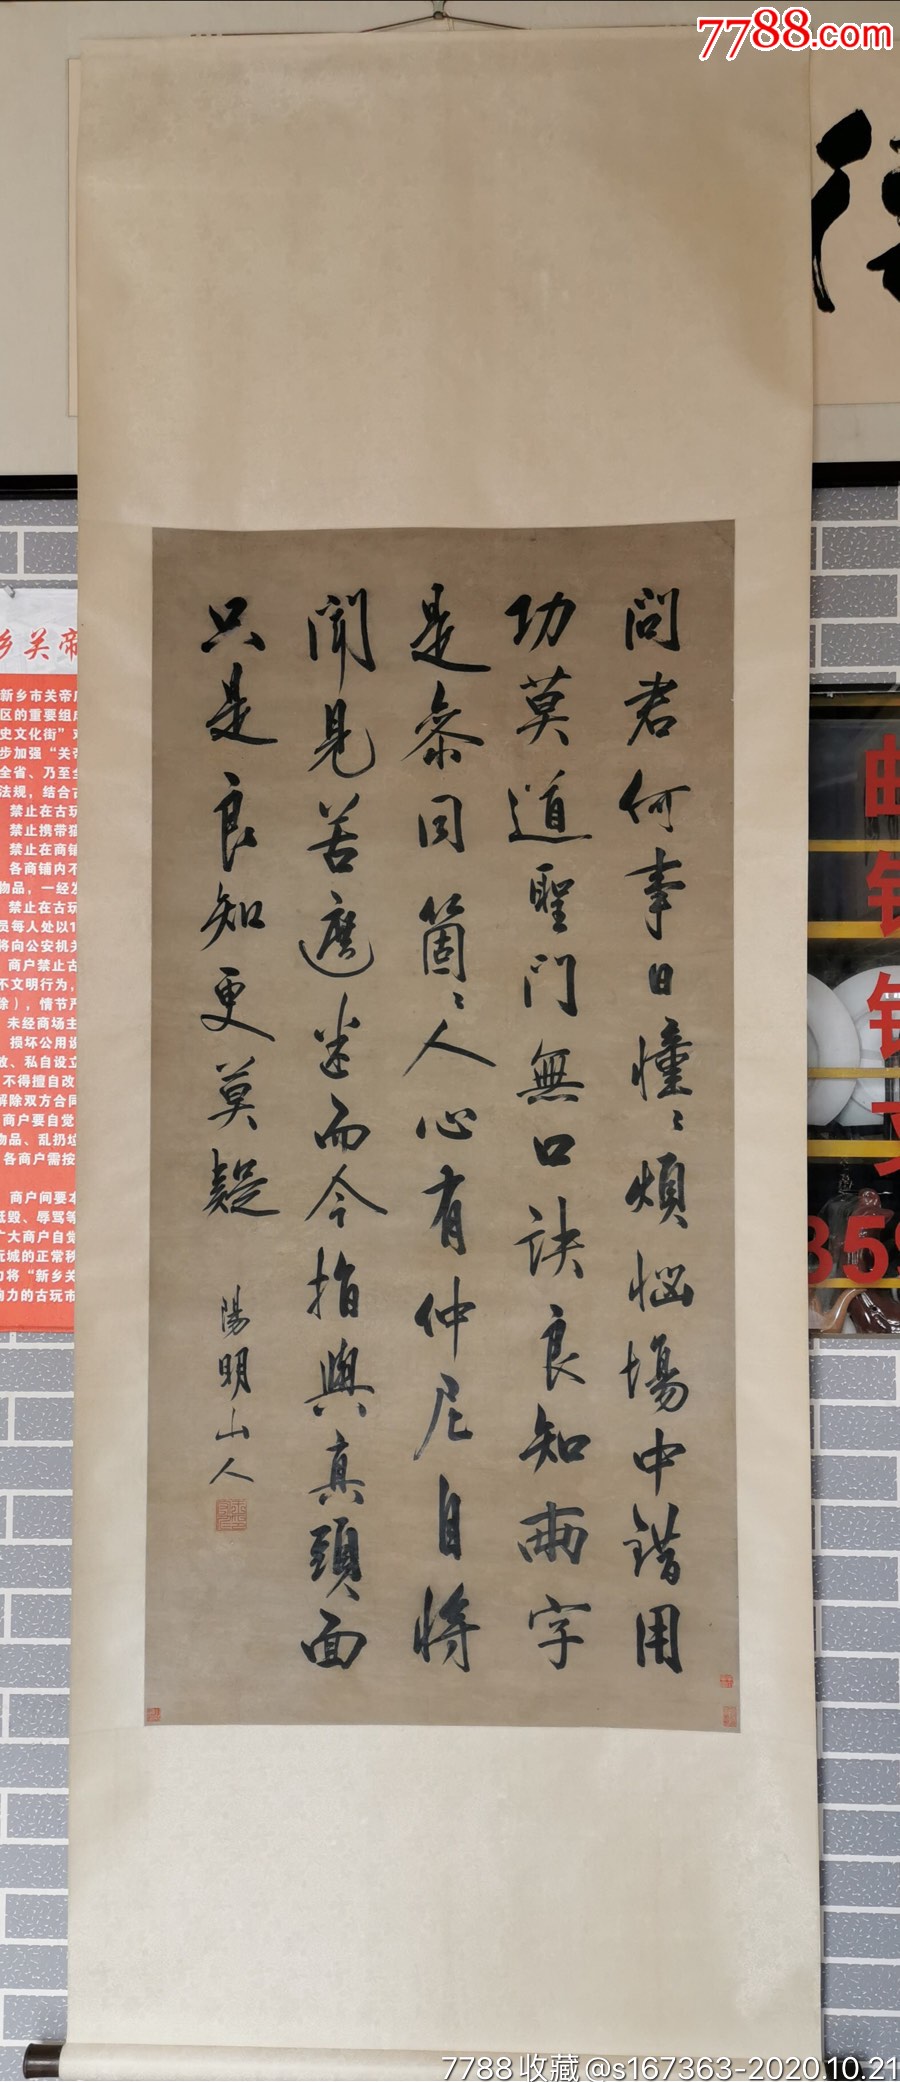 7788.com
問君何事日憧〻煩惱場中錯用
功莫道聖門無口訣良知兩字
是叅同箇〻人心有仲尼自將
聞見苦遮迷而今指與真頭面
只是良知更莫疑
陽明山人
乡关帝
新乡市关帝
区的重要组成
史文化街”
步加强“关帝
全省、乃至全
法规，结合
禁止在古玩
禁止携带猫
禁止在商铺
各商铺内不
物品，一经发
禁止在古玩
员每人处以1
将向公安机关
商户禁止古
不文明行为，
除），情节严
未经商场主
损坏公用设
放、私自设立
不得擅自改
解除双方合同
商户要自觉
物品、乱扔垃
各商户需按
商户间要本
诋毁、辱骂等
广大商户自觉
玩城的正常秩
力将“新乡关
响力的古玩市
859
7788收藏@s167363-2020.10.21